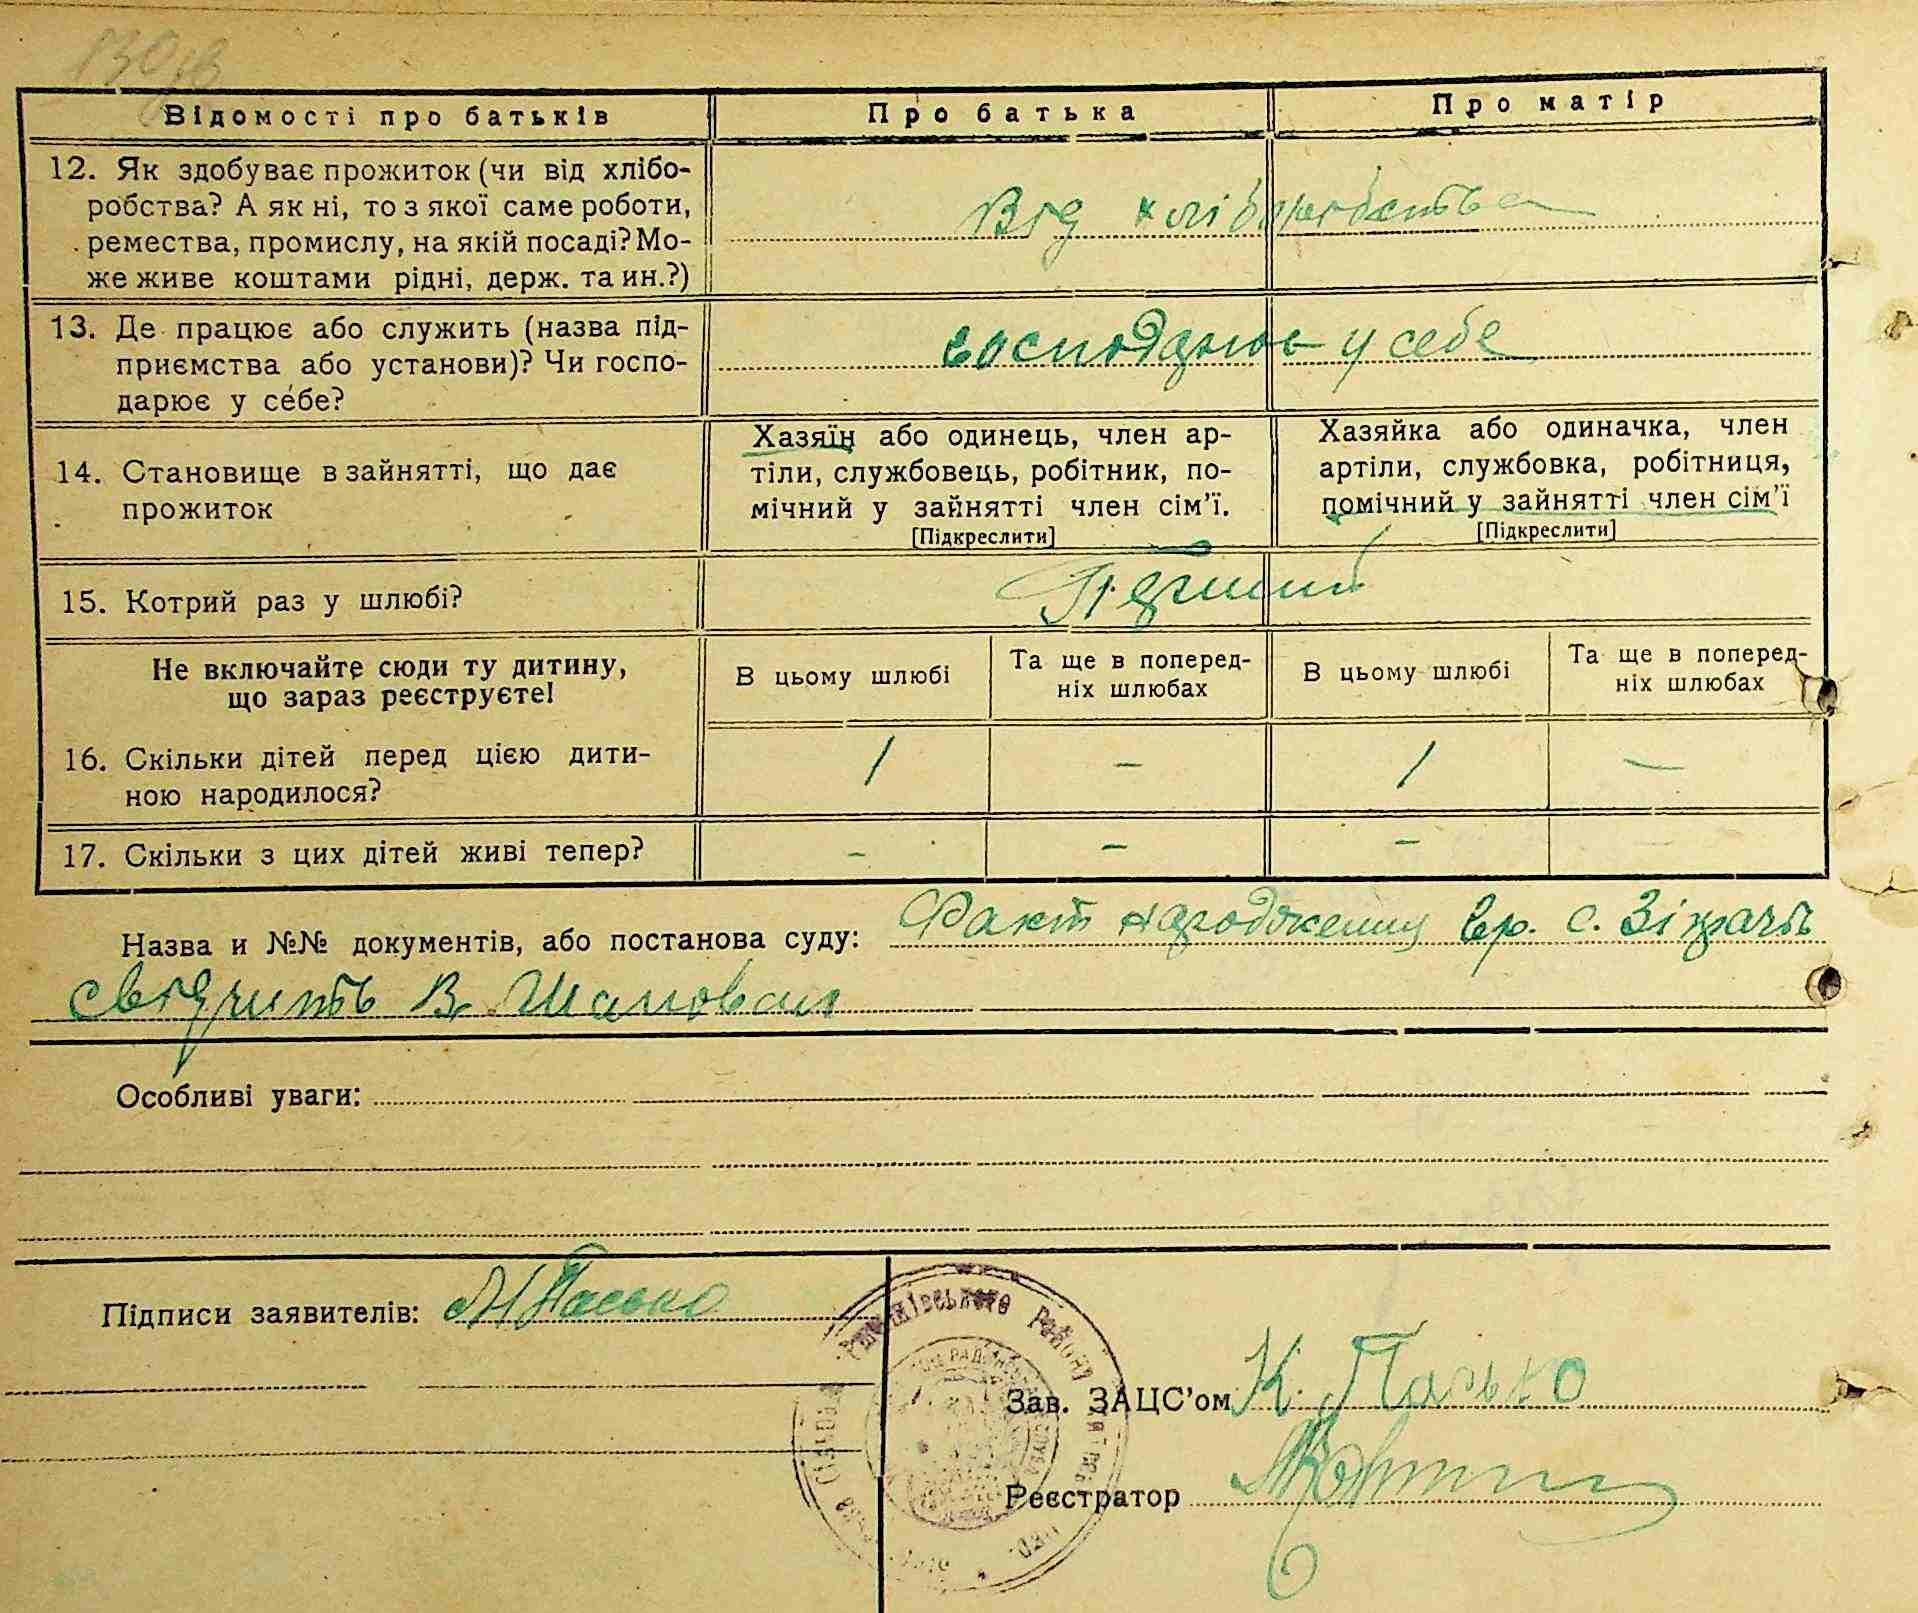 Відомості про батьків
Про батька
Про матір
12. Як здобуває прожиток (чи від хлібо-
робства? А як ні, то з якої саме роботи,
ремества, промислу, на якій посаді? Мо-
же живе коштами рідні, держ. та ин.?)
Від хліборобства
13. Де працює або служить (назва під-
приємства або установи)? Чи госпо-
дарює у себе?
господарює у себе
14. Становище в зайнятті, що дає
прожиток
Хазяїн або одинець, член ар-
тіли, службовець, робітник, по-
мічний у зайнятті член сім'ї.
[Підкреслити]
Хазяйка або одиначка, член
артіли, службовка, робітниця,
помічний у зайнятті член сім'ї
[Підкреслити]
15. Котрий раз у шлюбі?
Перший
Не включайте сюди ту дитину,
що зараз реєструєте!
В цьому шлюбі
Та ще в поперед-
ніх шлюбах
В цьому шлюбі
Та ще в поперед-
ніх шлюбах
16. Скільки дітей перед цією дити-
ною народилося?
1 - 1 -
17. Скільки з цих дітей живі тепер?
- - - -
Назва и №№ документів, або постанова суду: Факт народження гр. с.
свідчить В. Шаповал
Особливі уваги:
Підписи заявителів: М Пасько
Зав. ЗАЦС'ом К. Пасько
Реєстратор
району